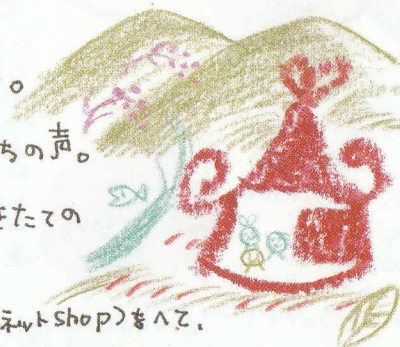 。
ちの声。
きたての
ネットshop)をへて、